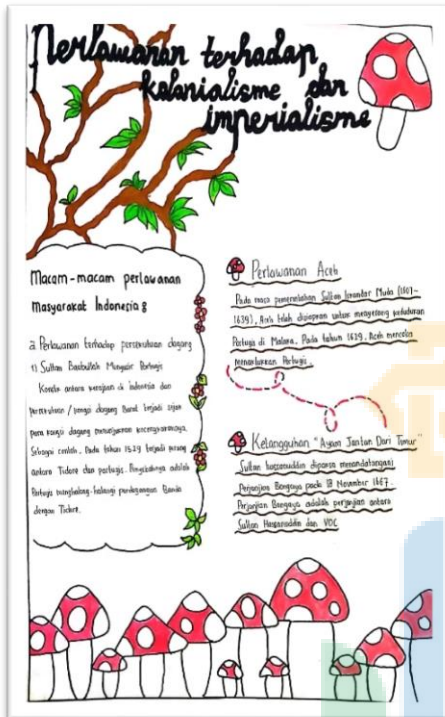 Perlawanan terhadap
kolonialisme dan
imperialisme
Macam-macam perlawanan
Masyarakat Indonesia :
a. Perlawanan terhadap persekutuan dagang
1) Sultan Baabullah Mengusir Portugis
antara kerajaan di indonesia dan
persekutuan / kongsi dagang Barat terjadi sejak
para kongsi dagang menunjukkan
Sebagai contoh, Pada tahun 1529 terjadi perang
antara Tidore dan portugis. Penyebabnya adalah
Portugis menghalang-halangi perdagangan Banda
dengan Tidore.
Perlawanan Aceh
Pada masa pemerintahan Sultan Iskandar Muda (1607-
1639), Aceh telah disiapkan untuk menyerang kedudukan
Portugis di Malaka. Pada tahun 1629, Aceh mencoba
menaklukkan Portugis.
Ketangguhan "Ayam Jantan Dari Timur"
Sultan hasanuddin dipaksa menandatangani
Perjanjian Bongaya pada 18 November 1667.
Perjanjian Bongaya adalah perjanjian antara
Sultan Hasanuddin dan VOC